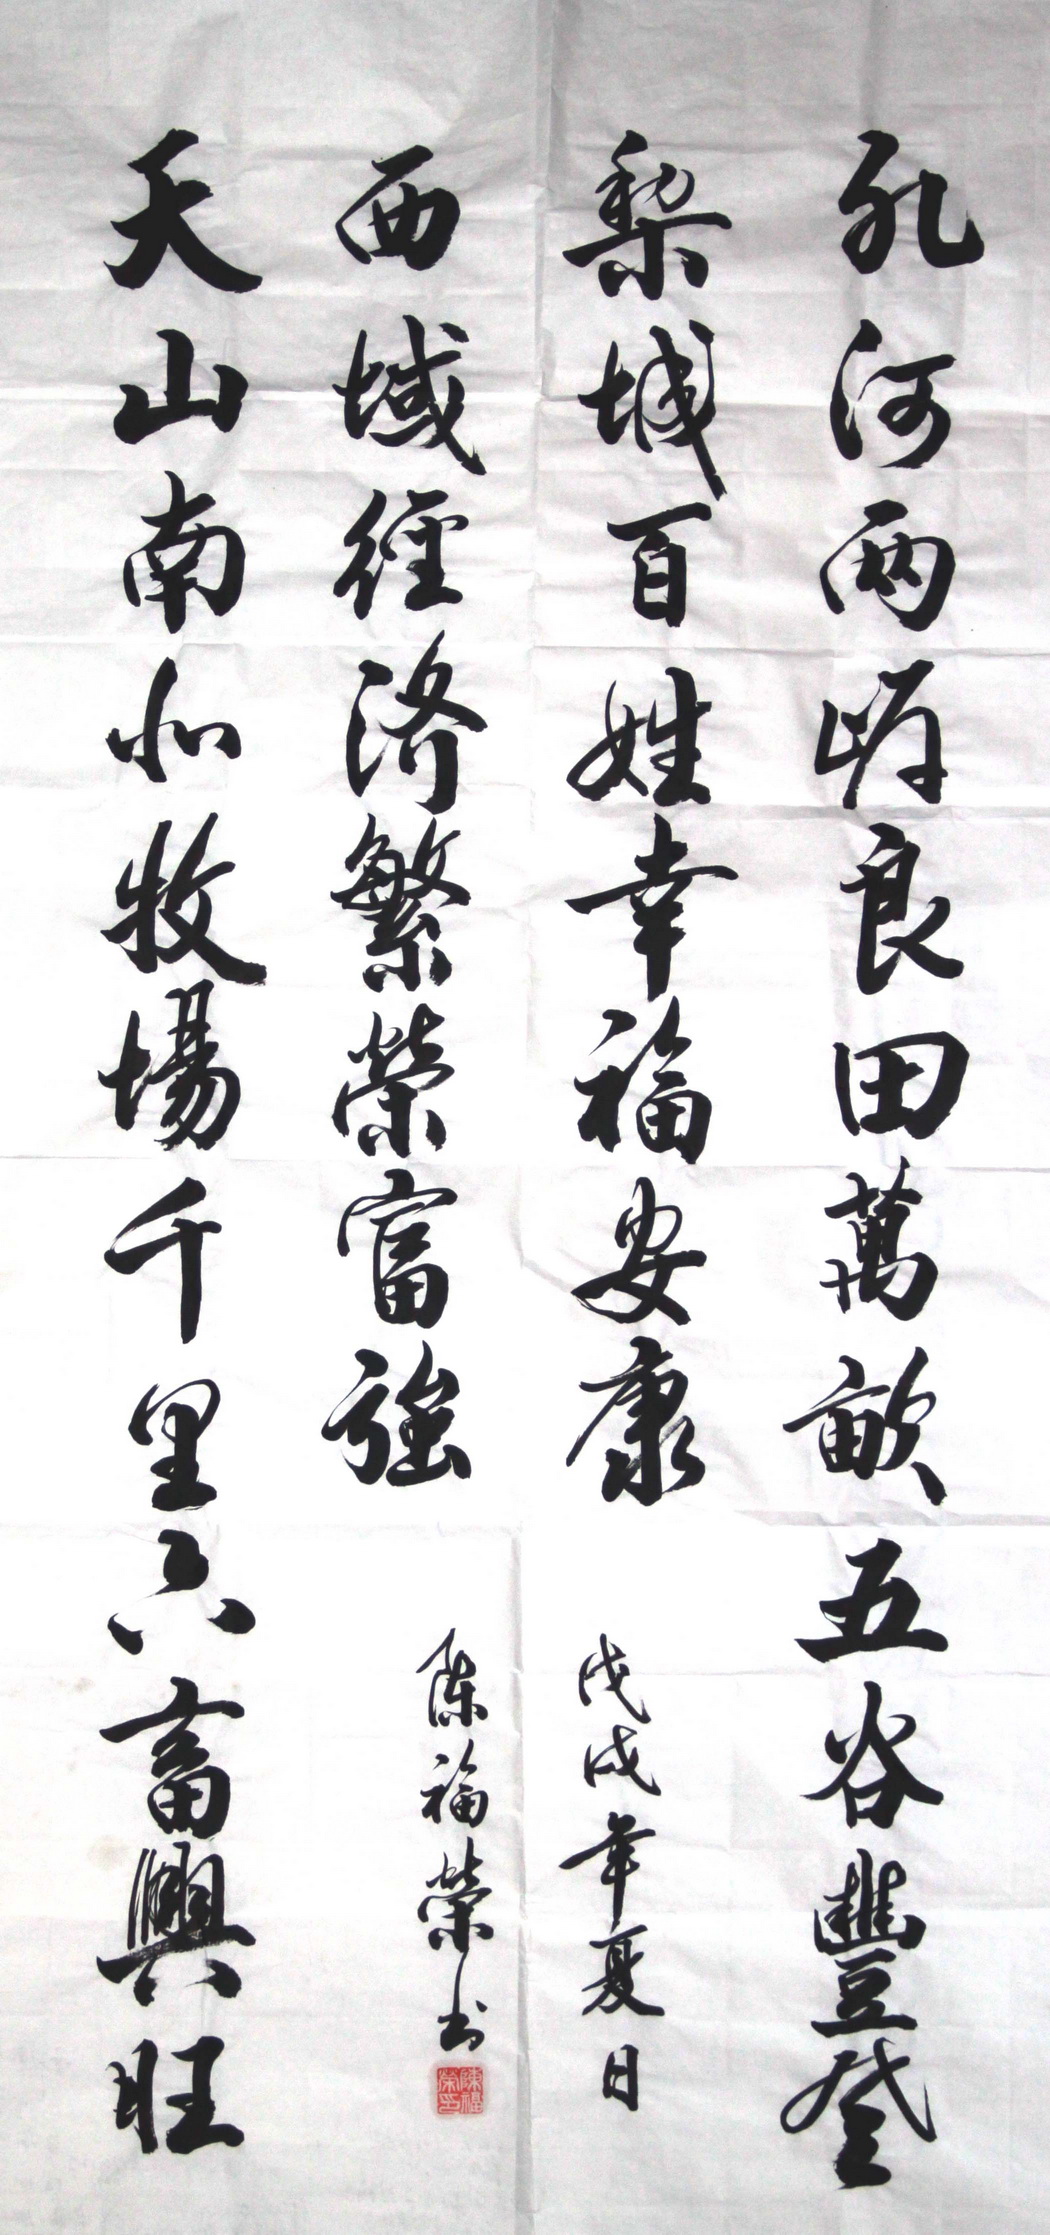 孔河两岸良田萬畝五谷豐登
梨城百姓幸福安康
戊戌年夏日
天山南北牧場千里六畜興旺
西域經济繁榮富強
陈福榮书
陳福榮印